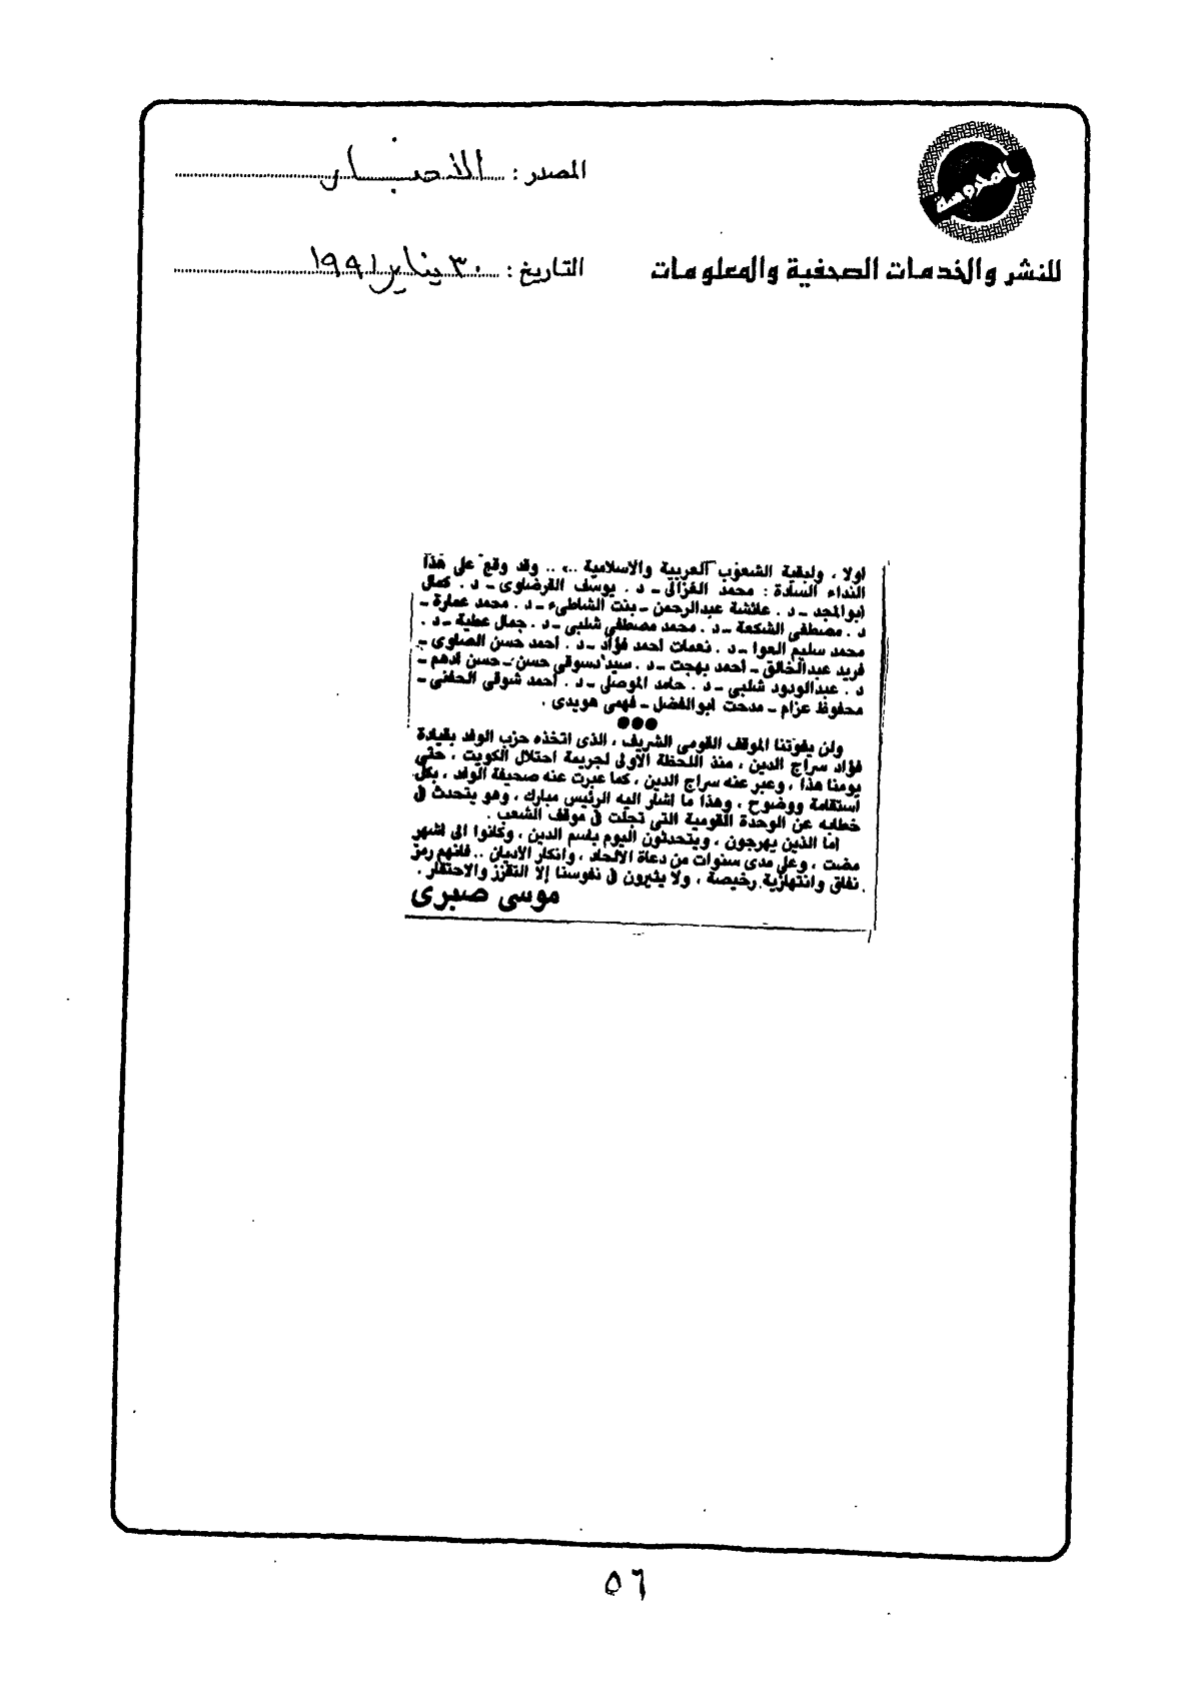 المحروسة
المصدر : الأخبار
للنشر والخدمات الصحفية والمعلومات
التاريخ : ٣٠ يناير ١٩٩١
اولا ، ولبقية الشعوب العربية والاسلامية ..» .. وقد وقع على هذا
النداء السادة : محمد الغزالى ـ د . يوسف القرضاوى ـ د . كمال
ابوالمجد ـ د . عائشة عبدالرحمن ـ بنت الشاطىء ـ د . محمد عمارة ـ
د . مصطفى الشكعة ـ د . محمد مصطفى شلبى ـ د . جمال عطية ـ د .
محمد سليم العوا ـ د . نعمات احمد فؤاد ـ د . احمد حسن الصاوى ـ
فريد عبدالخالق ـ احمد بهجت ـ د . سيد دسوقى حسن ـ حسن ادهم ـ
د . عبدالودود شلبى ـ د . حامد الموصلى ـ د . احمد شوقى الحفنى ـ
محفوظ عزام ـ مدحت ابوالفضل ـ فهمى هويدى .
●●●
ولن يفوتنا الموقف القومى الشريف ، الذى اتخذه حزب الوفد بقيادة
فؤاد سراج الدين ، منذ اللحظة الاولى لجريمة احتلال الكويت ، حتى
يومنا هذا ، وعبر عنه سراج الدين ، كما عبرت عنه صحيفة الوفد ، بكل
استقامة ووضوح ، وهذا ما اشار اليه الرئيس مبارك ، وهو يتحدث فى
خطابه عن الوحدة القومية التى تجلت فى موقف الشعب .
اما الذين يهرجون ، ويتحدثون اليوم باسم الدين ، وكانوا الى اشهر
مضت ، وعلى مدى سنوات من دعاة الالحاد ، وانكار الأديان .. فانهم رمز
نفاق وانتهازية رخيصة ، ولا يثيرون فى نفوسنا إلا التقزز والاحتقار .
موسى صبرى
٥٦